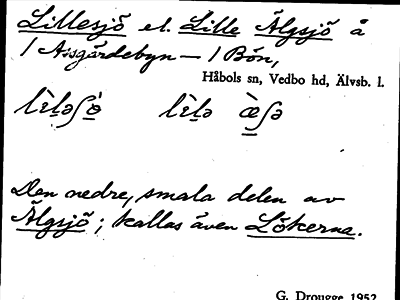 Lillesjö el. Lille Älgsjö å
1 Assgärdebyn – 1 Bön,
Håbols sn, Vedbo hd, Älvsb. l.
Den nedre, smala delen av
Älgsjö; kallas även Lökerna.
G. Drougge 1952